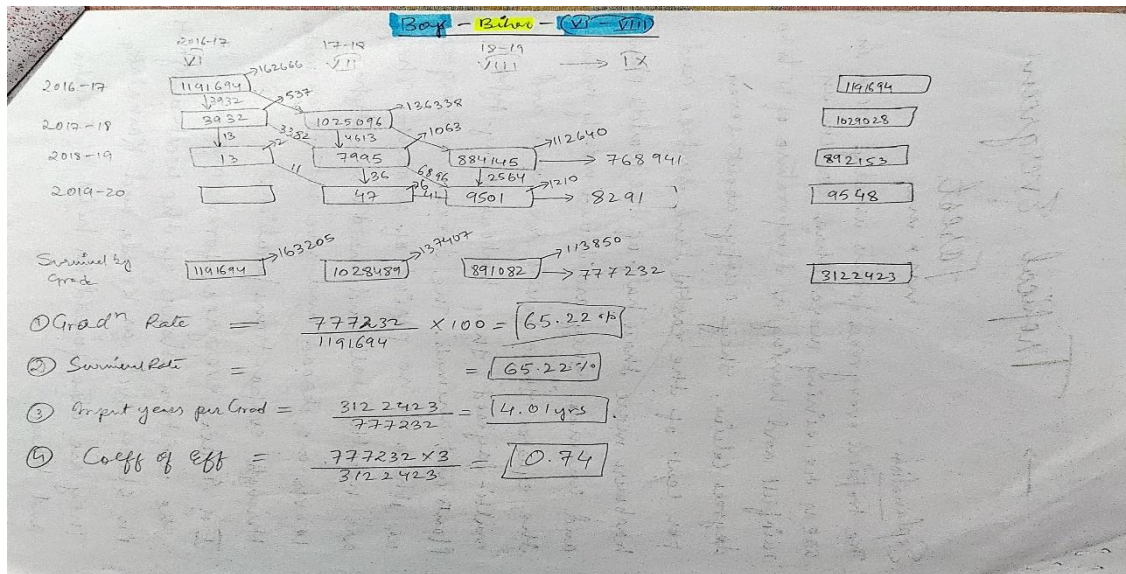 Boys - Bihar - (VI - VIII)
2016-17 17-18 18-19
VI VII VIII → IX
2016-17 1191694 →162666 1191694
↓3932 →537
2017-18 3932 1025096 →136338 1029028
↓13 3382 ↓4613 →1063
2018-19 13 →2 7995 884145 →112640 → 768941 892153
11 ↓36 6896 ↓2564
2019-20 47 →6 41 9501 →1210 → 8291 9548
Survival by Grade 1191694 →163205 1028489 →137407 891082 →113850 → 777232 3122423
① Gradⁿ Rate = 777232 / 1191694 × 100 = 65.22 %
② Survival Rate = = 65.22%
③ Input years per Grad = 3122423 / 777232 = 4.01 yrs.
④ Coeff of Eff = 777232 × 3 / 3122423 = 0.74